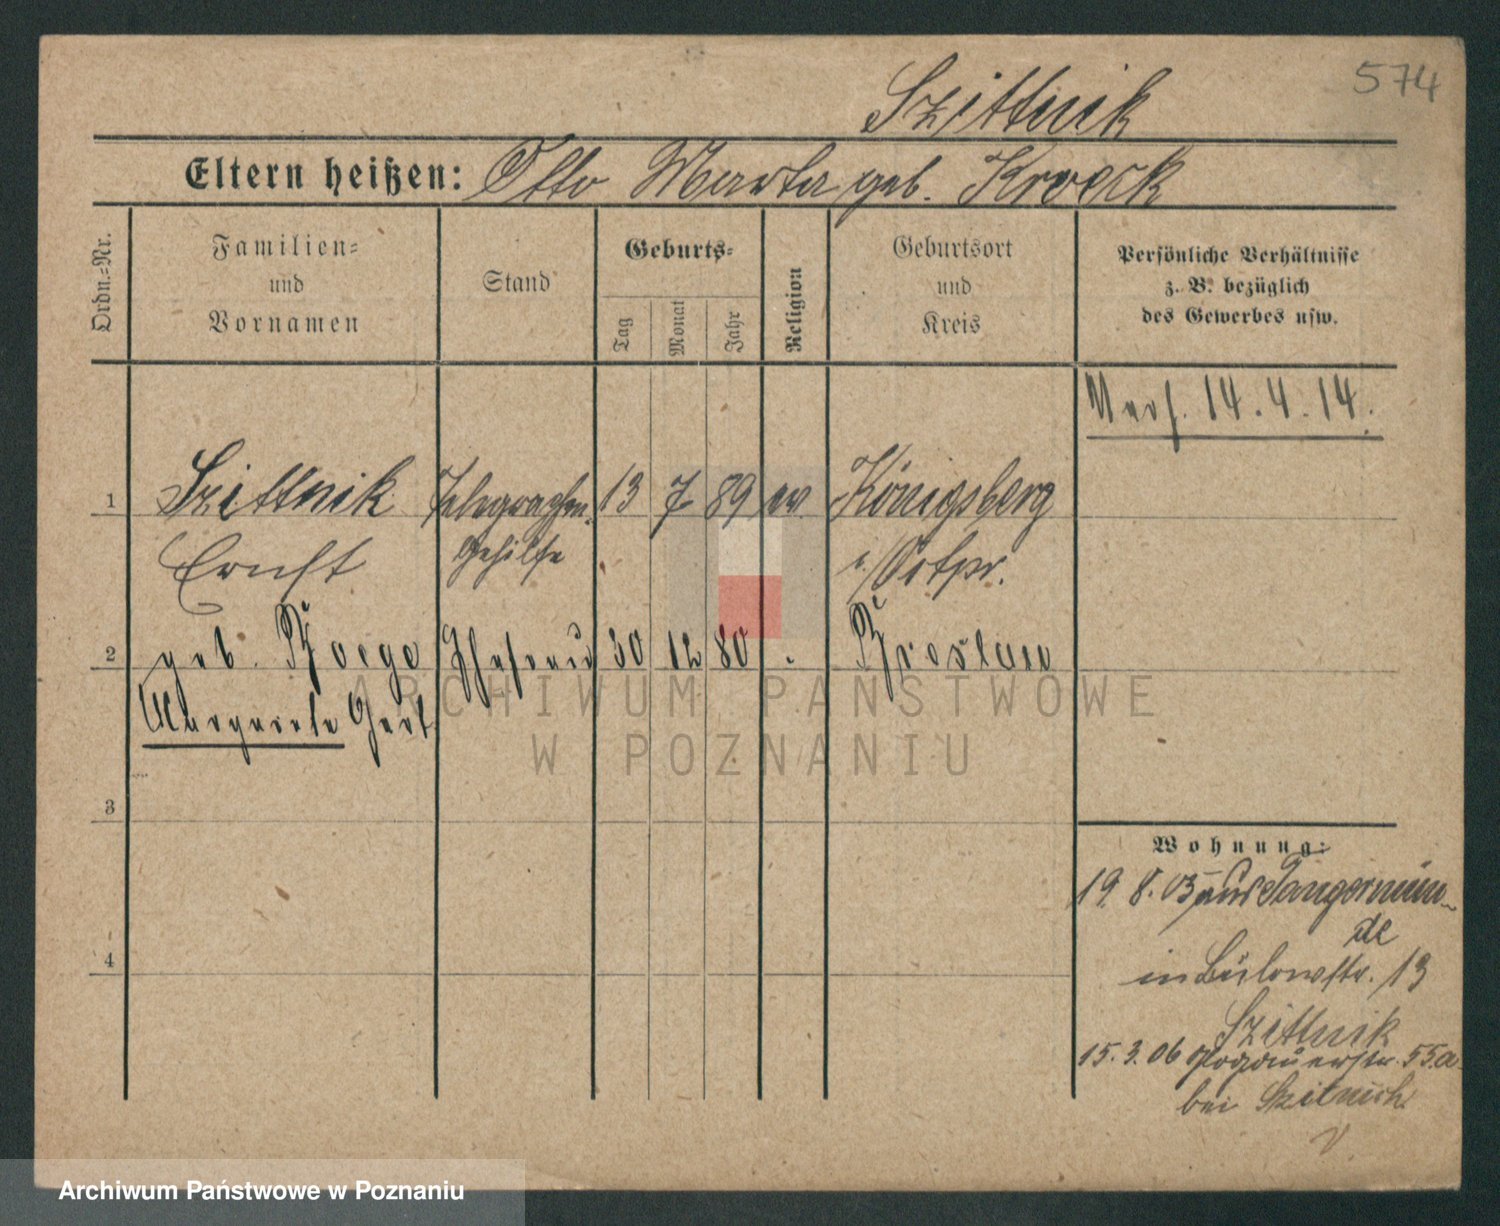 574
Szittnik
Eltern heißen: Otto Marta geb. Kroeck
Ordn.=Nr.
Familien=
und
Vornamen
Stand
Geburts=
Tag
Monat
Jahr
Religion
Geburtsort
und
Kreis
Persönliche Verhältnisse
z. B. bezüglich
des Gewerbes usw.
14.4.14.
1 Szittnik Telegraphen- 13 7 89 ev. Königsberg
Ernst Gehilfe i/Ostpr.
2 geb. Ehefrau 30 12 80 Breslau
Margarete Gert.
3
4
Wohnung:
19.8.05 aus Tangermün-
de
in Bülowstr. 13
Szittnik
15.3.06 Glogauerstr. 55.a
bei
ARCHIWUM PAŃSTWOWE
W POZNANIU
Archiwum Państwowe w Poznaniu